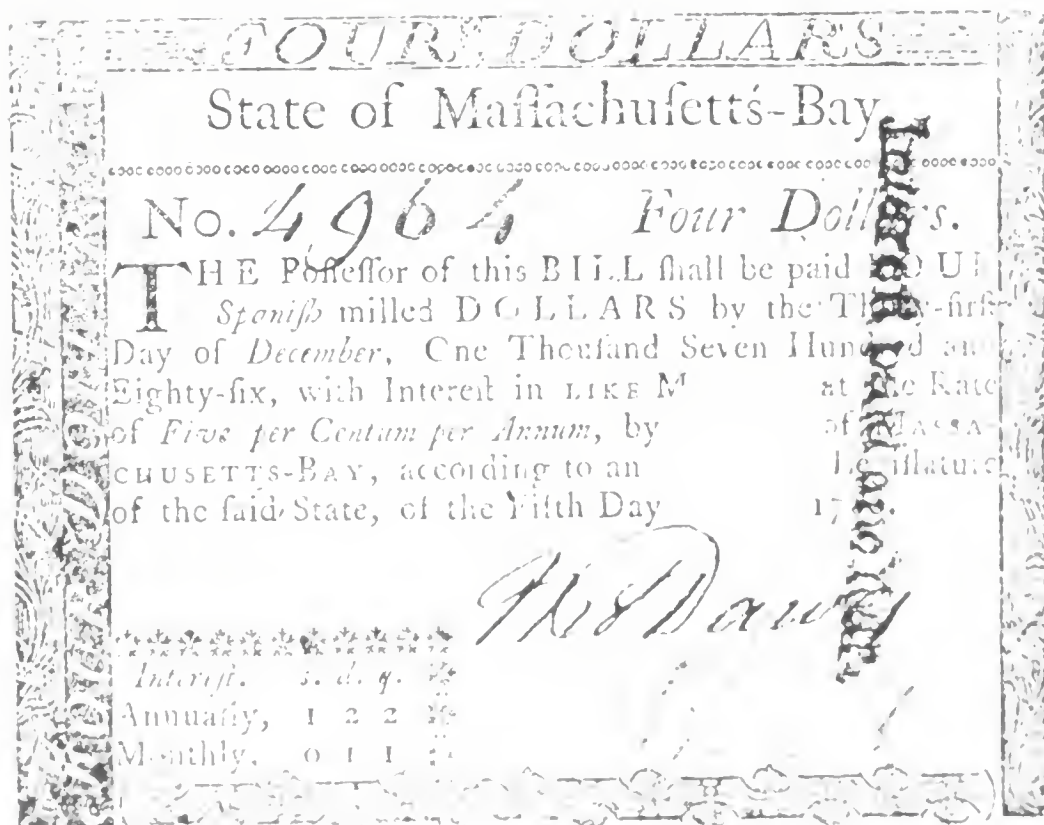 FOUR DOLLARS
State of Maſſachuſetts-Bay
No. 4964 Four Dollars.
THE Poſſeſſor of this BILL ſhall be paid
Spaniſh milled DOLLARS by the Thirty-firſt
Day of December, One Thouſand Seven Hundred and
Eighty-ſix, with Intereſt in LIKE M at the Rate
of Five per Centum per Annum, by of MASSA-
CHUSETTS-BAY, according to an Legiſlature
of the ſaid State, of the Fifth Day 17
Intereſt. s. d. q.
Annually, 1 2 2
Monthly, 0 1 1
Intereſt paid one Year.